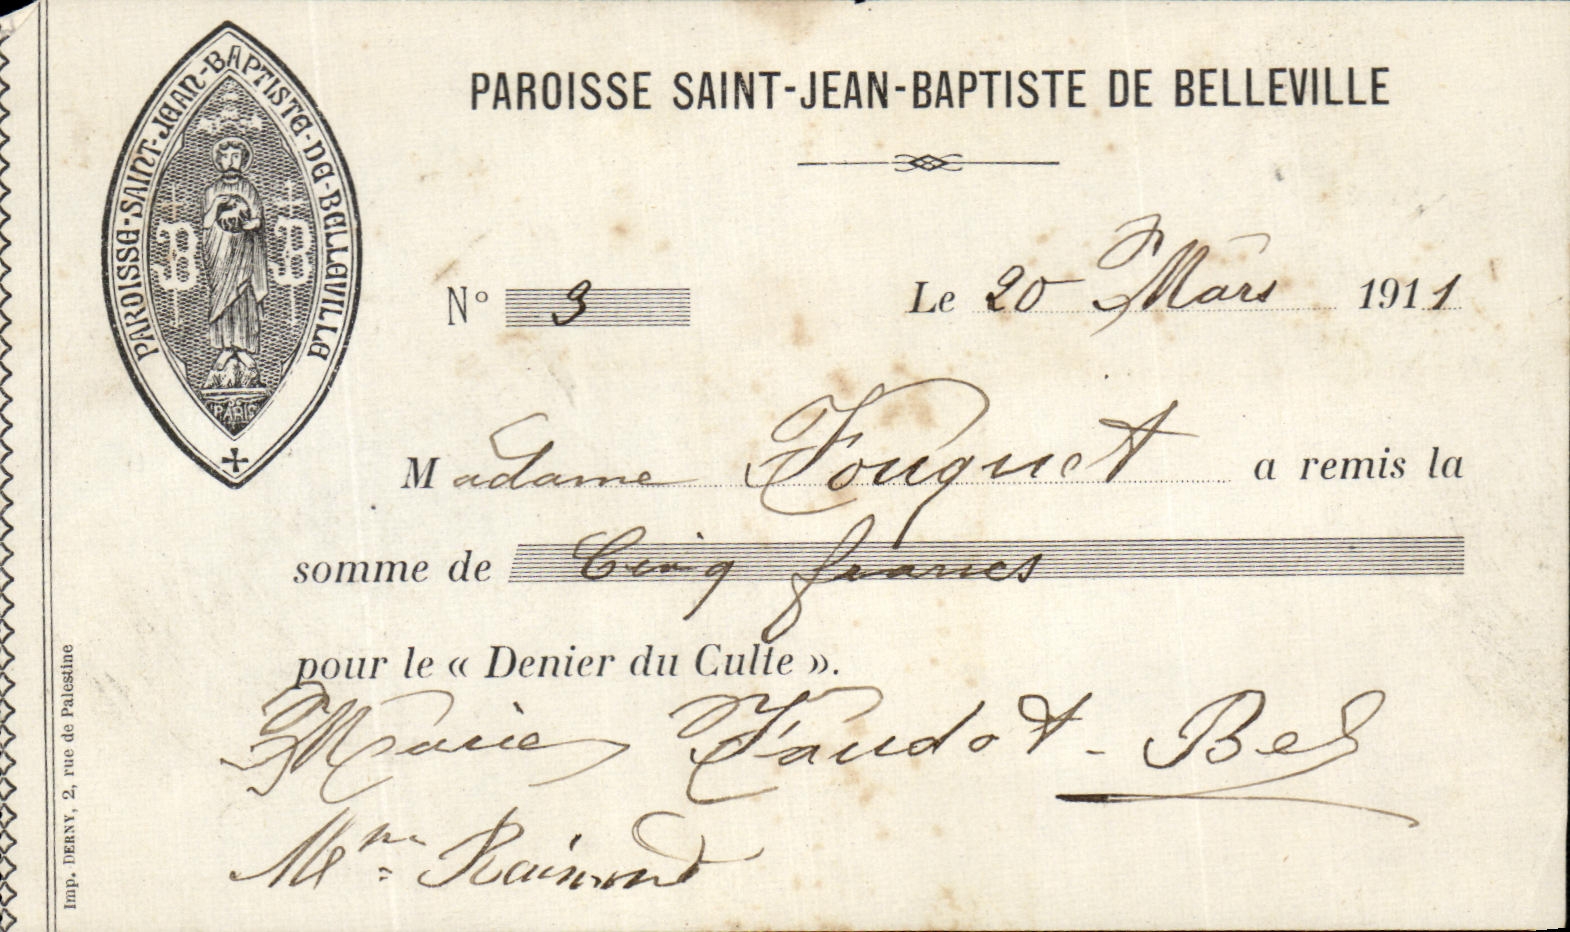 PAROISSE·SAINT·JEAN-BAPTISTE·DE·BELLEVILLE
PARIS
PAROISSE SAINT-JEAN-BAPTISTE DE BELLEVILLE
N° 3 Le 20 Mars 1911
Madame Fouquet a remis la
somme de Cinq francs
pour le « Denier du Culte ».
Marie Faudot-Bel
Mme Raimond
Imp. DERNY, 2, rue de Palestine